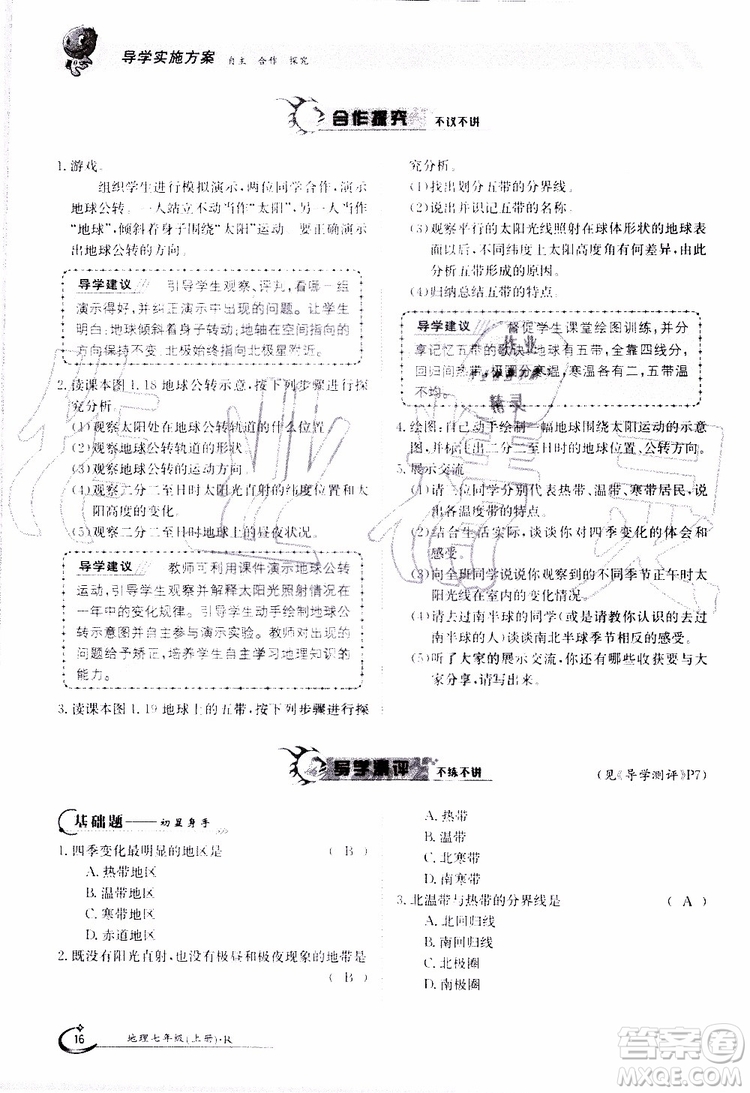 导学实施方案 自主 合作 探究
合作探究 不议不讲
1. 游戏。
组织学生进行模拟演示，两位同学合作，演示
地球公转。一人站立不动当作“太阳”，另一人当作
“地球”，倾斜着身子围绕“太阳”运动。同时注意演示
出地球公转的方向。
导学建议 引导学生观察、评判，看哪一组
演示得好，并纠正演示中出现的问题。让学生
明白：地球倾斜着身子转动；地轴在空间指向的
方向保持不变，北极始终指向北极星附近。
2. 读课本图1.18地球公转示意，按下列步骤进行探
究分析。
(1)观察太阳处在地球公转轨道的什么位置。
(2)观察地球公转轨道的形状。
(3)观察地球公转运动的方向。
(4)观察二分二至日时太阳光直射的纬度位置及太
阳高度的变化。
(5)观察二分二至日时地球上的昼夜状况。
导学建议 教师可利用课件演示地球公转
运动，引导学生观察并解释太阳光照射情况在
一年中的变化规律。引导学生动手绘制地球公
转示意图并自主参与演示实验。教师对出现的
问题给予矫正，培养学生自主学习地理知识的
能力。
3. 读课本图1.19地球上的五带，按下列步骤进行探
究分析。
(1)找出划分五带的分界线。
(2)说出并识记五带的名称。
(3)观察平行的太阳光线照射在球体形状的地球表
面以后，不同纬度上太阳高度角有何差异，由此
分析五带形成的原因。
(4)归纳总结五带的特点。
导学建议 督促学生课堂绘图训练，并共
分享记忆五带的歌诀：地球有五带，全靠四线分，
回归为热带，极圈分寒温，寒温各有二，五带温
不均。
4. 绘图：自己动手绘制一幅地球围绕太阳运动的示意
图，并标注出二分二至日时的地球位置、公转方向。
5. 展示交流
(1)请三位同学分别代表热带、温带、寒带居民，说
说五带的特点。
(2)结合生活实际，谈谈你对四季变化的体会和
感受。
(3)向全班同学说说你观察到的不同季节正午太
阳光线在室内的变化情况。
(4)请去过南半球的同学(或是请教你认识的去过
南半球的人)谈谈南北半球季节变化的感受。
(5)听了大家的展示交流，你有哪些收获要与大
家分享，请写出来。
导学测评 不练不讲
(见《导学测评》P7)
基础题——初显身手
1. 四季变化最明显的地区是 ( B )
A. 热带地区
B. 温带地区
C. 寒带地区
D. 赤道地区
2. 既没有阳光直射，也没有极昼和极夜现象的地带是
( B )
A. 热带
B. 温带
C. 北寒带
D. 南寒带
3. 北温带与热带的分界线是 ( A )
A. 北回归线
B. 南回归线
C. 北极圈
D. 南极圈
16 地理七年级(上册)·R
作业
精灵
作业精灵
答案圈
MXQE.COM